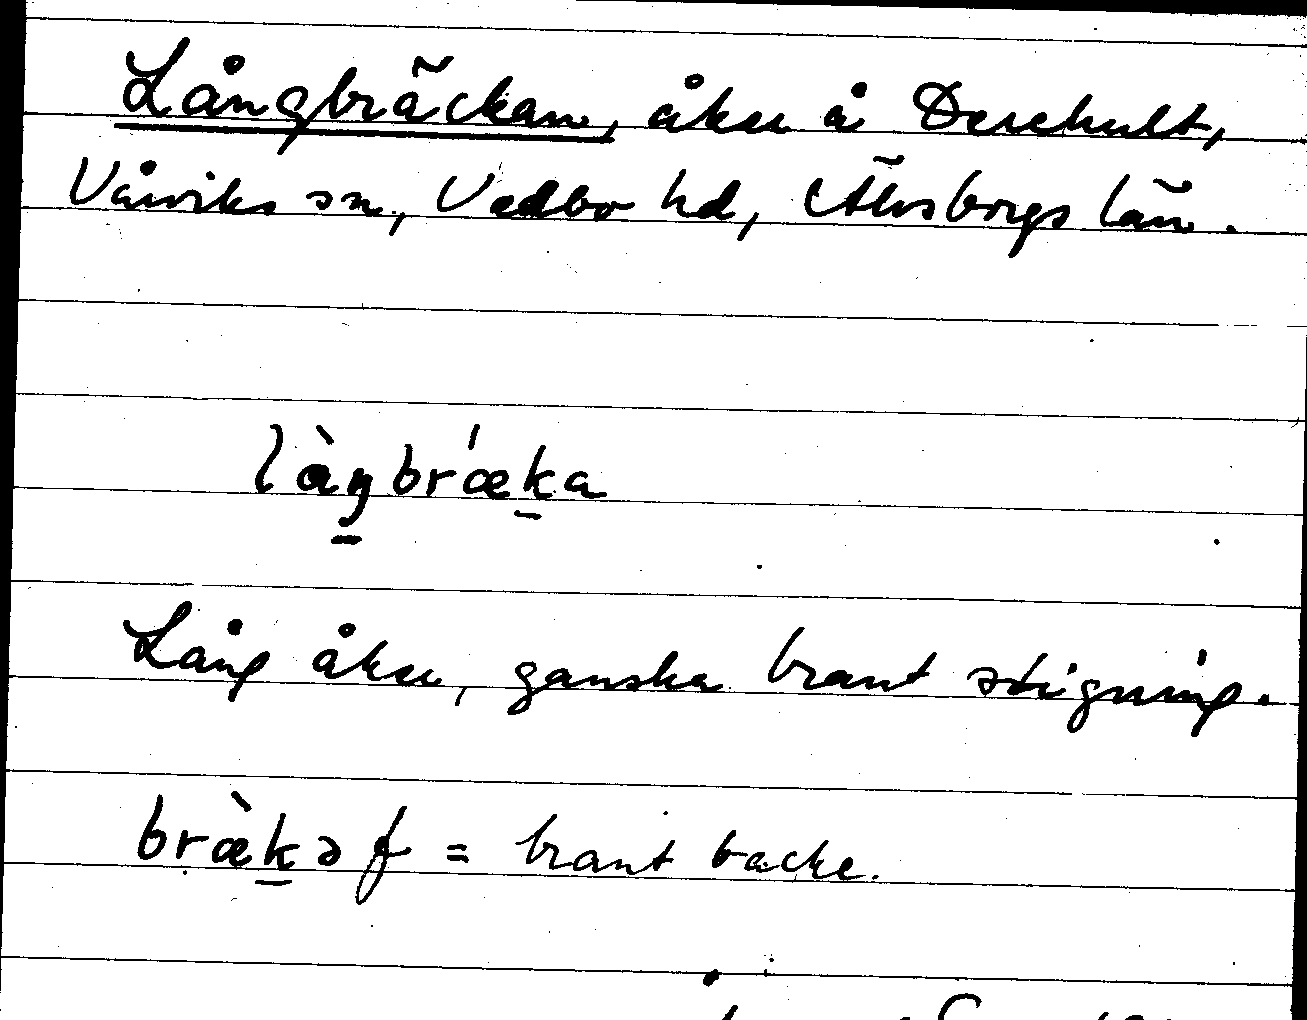 Långbräckan, åker å Derehult,
Vårviks sn, Vedbo hd, Älvsborgs län.
là̠ŋbrǽk̠a
Lång åker, ganska brant stigning.
bræ̀k̠ə f = brant backe.